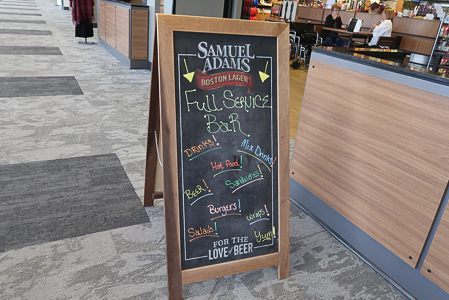 SAMUEL
ADAMS
BOSTON LAGER
Full Service
Bar
Drinks! Mix Drinks!
Hot food!
Beer! Sandwiches!
Burgers!
Wraps!
Salads! Yum!
FOR THE
LOVE OF BEER